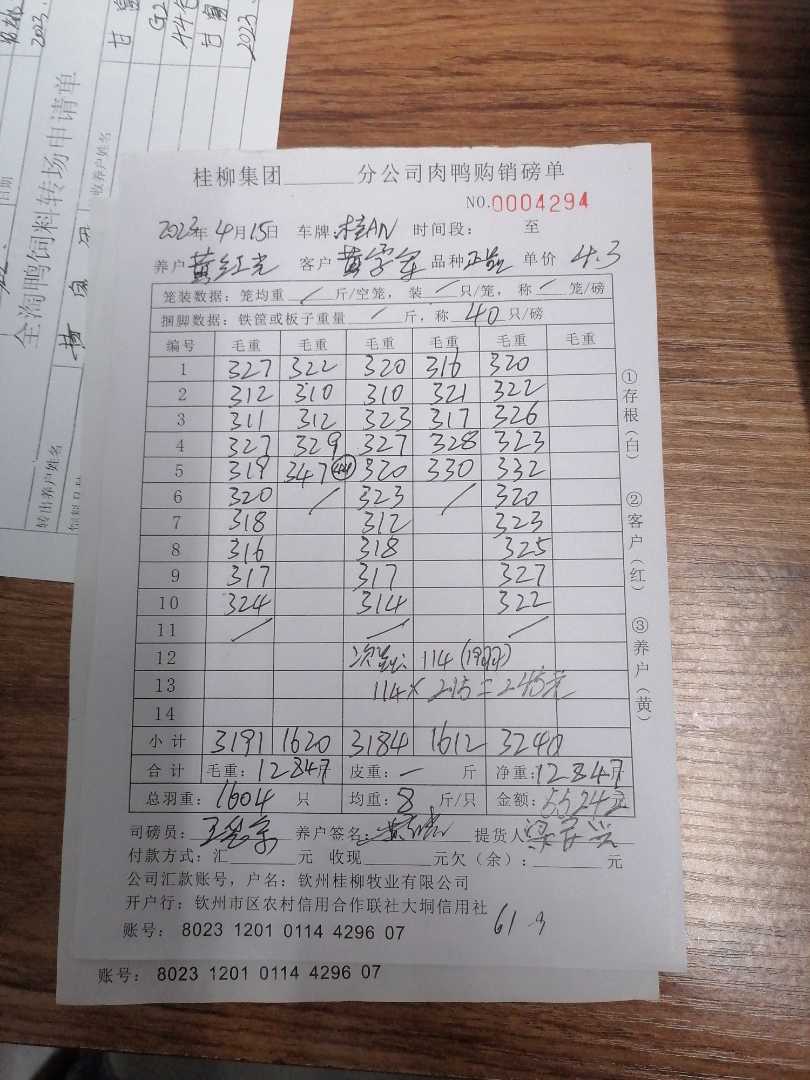 全淘鸭饲料转场申请单
收养户姓名
转出养户姓名
2023.
G2
甘
2023
桂柳集团______分公司肉鸭购销磅单
NO.0004294
2023年4月15日 车牌:桂AN 时间段: 至
养户黄红光 客户 品种正品 单价 4.3
笼装数据:笼均重 / 斤/空笼,装 / 只/笼,称 / 笼/磅
捆脚数据:铁筐或板子重量 / 斤,称 40 只/磅
编号 毛重 毛重 毛重 毛重 毛重 毛重
1 327 322 320 316 320
2 312 310 310 321 322
3 311 312 323 317 326
4 327 329 327 328 323
5 319 347 (44) 320 330 332
6 320 / 323 / 320
7 318 312 323
8 316 318 325
9 317 317 327
10 324 314 322
11 / / /
12 次品 114 (19只)
13 114×2.15=245元
14
小计 3191 1620 3184 1612 3240
合计 毛重:12847斤 皮重:— 斤 净重:12847斤
总羽重:1604 只 均重:8 斤/只 金额:55242元
司磅员: 养户签名: 提货人
付款方式:汇______元 收现______元欠(余):______元
公司汇款账号,户名:钦州桂柳牧业有限公司
开户行:钦州市区农村信用合作联社大垌信用社
账号:8023 1201 0114 4296 07
61
账号:8023 1201 0114 4296 07
①存根(白)
②客户(红)
③养户(黄)